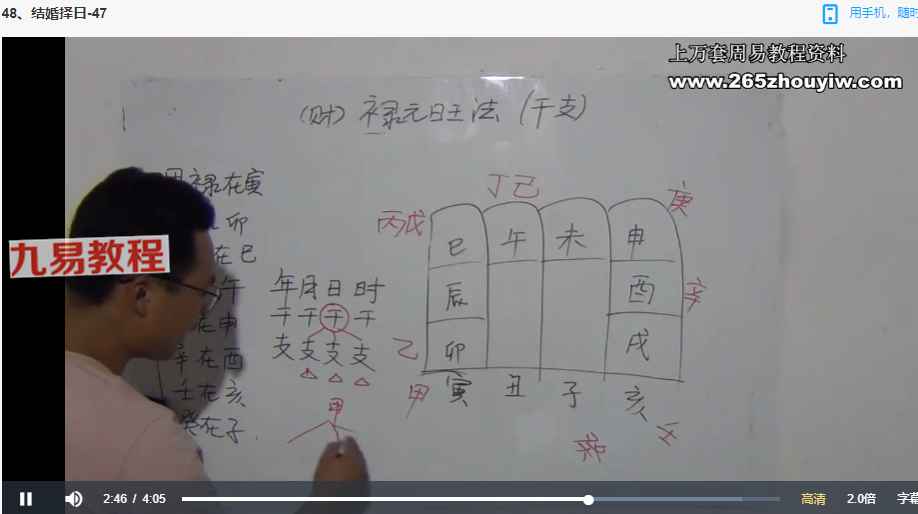 48、结婚择日-47
用手机，随时
上万套周易教程资料
www.265zhouyiw.com
(财) 禄元旺法 (干支)
禄在寅
卯
在巳
午
在申
辛在酉
壬在亥
癸在子.
九易教程
年月日时
干干干干
支支支支
甲
丁己
丙戊
庚
巳 午 未 申
辰 酉 辛
乙 卯 戌
甲 寅 丑 子 亥
癸 壬
2:46 / 4:05
高清
2.0倍
字幕